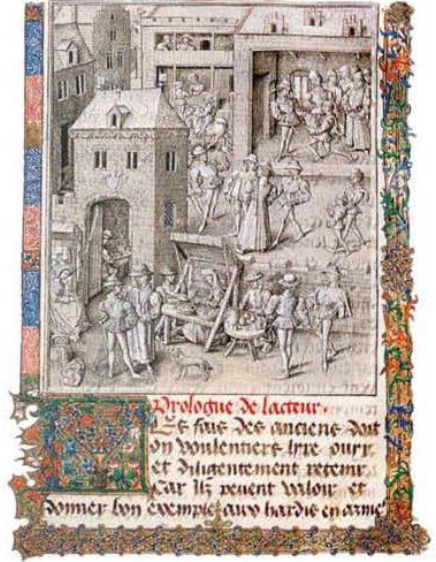 Prologue de lacteur.
Les fais des anciens doit
on voulentiers lyre ouyr
et diligentement retenir
Car ilz peuent valoir et
donner bon exemple aux hardis en arme